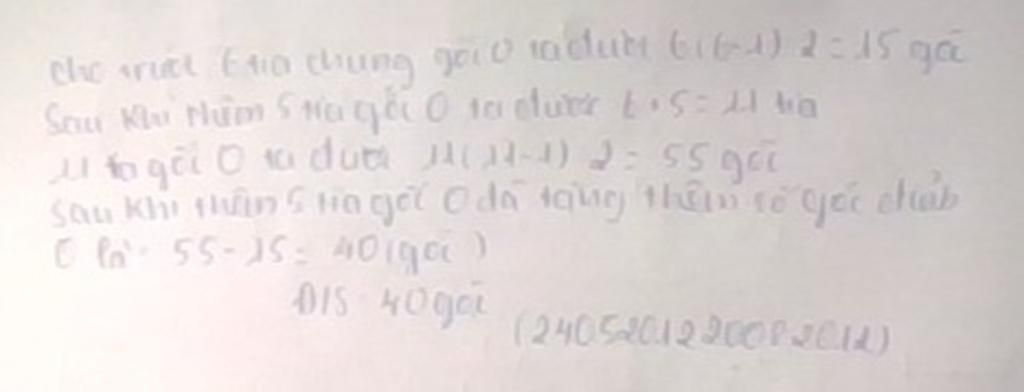 Cho trước 6 tia chung gốc O ta được 6(6-1) 2 = 15 góc
Sau khi thêm 5 tia gốc O ta được 6 + 5 = 11 tia
11 tia gốc O ta được 11(11-1) 2 = 55 góc
Sau khi thêm 5 tia gốc O đã tăng thêm số góc đỉnh
O là: 55 - 15 = 40 (góc)
Đ/S: 40 góc